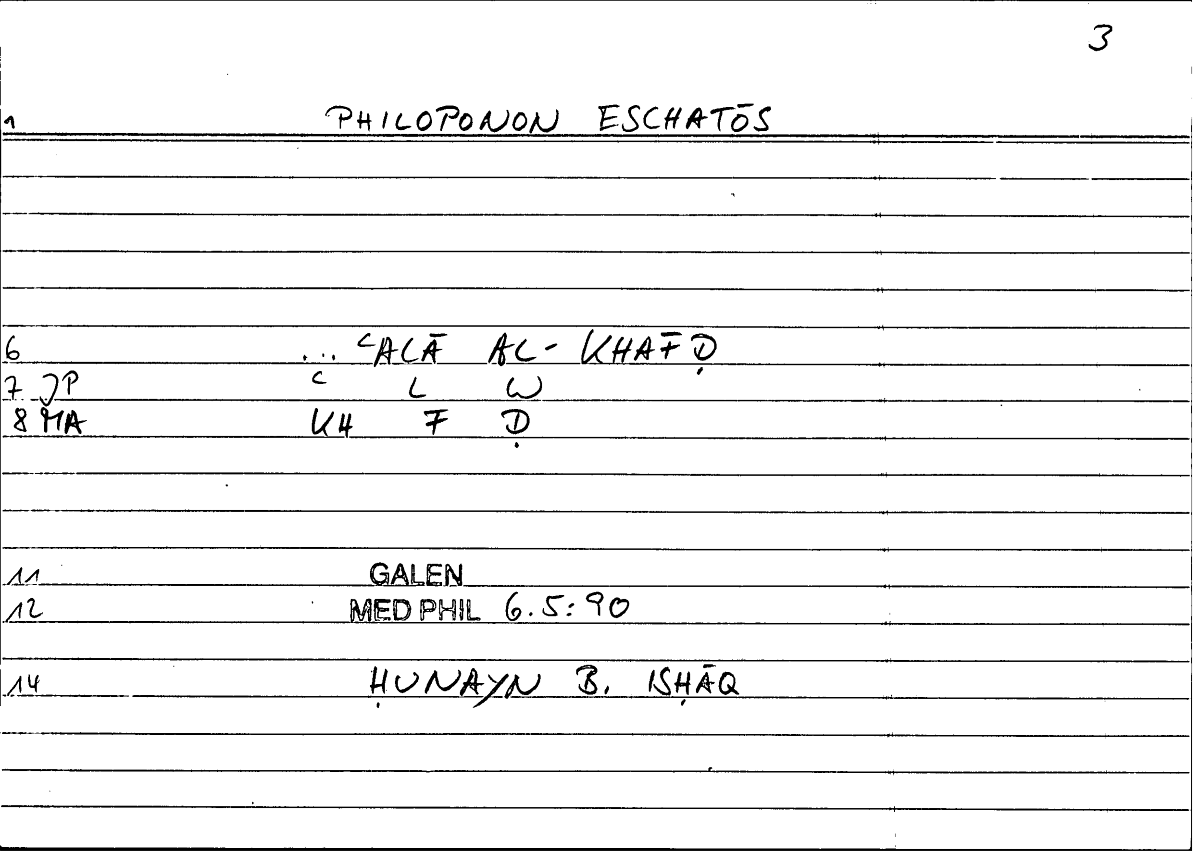 3
1 PHILOPONON ESCHATŌS
6 ... ʿALĀ AL-KHAFḌ
7 JP ʿ L W
8 MA KH F Ḍ
11 GALEN
12 MED PHIL 6.5:90
14 ḤUNAYN B. ISḤĀQ